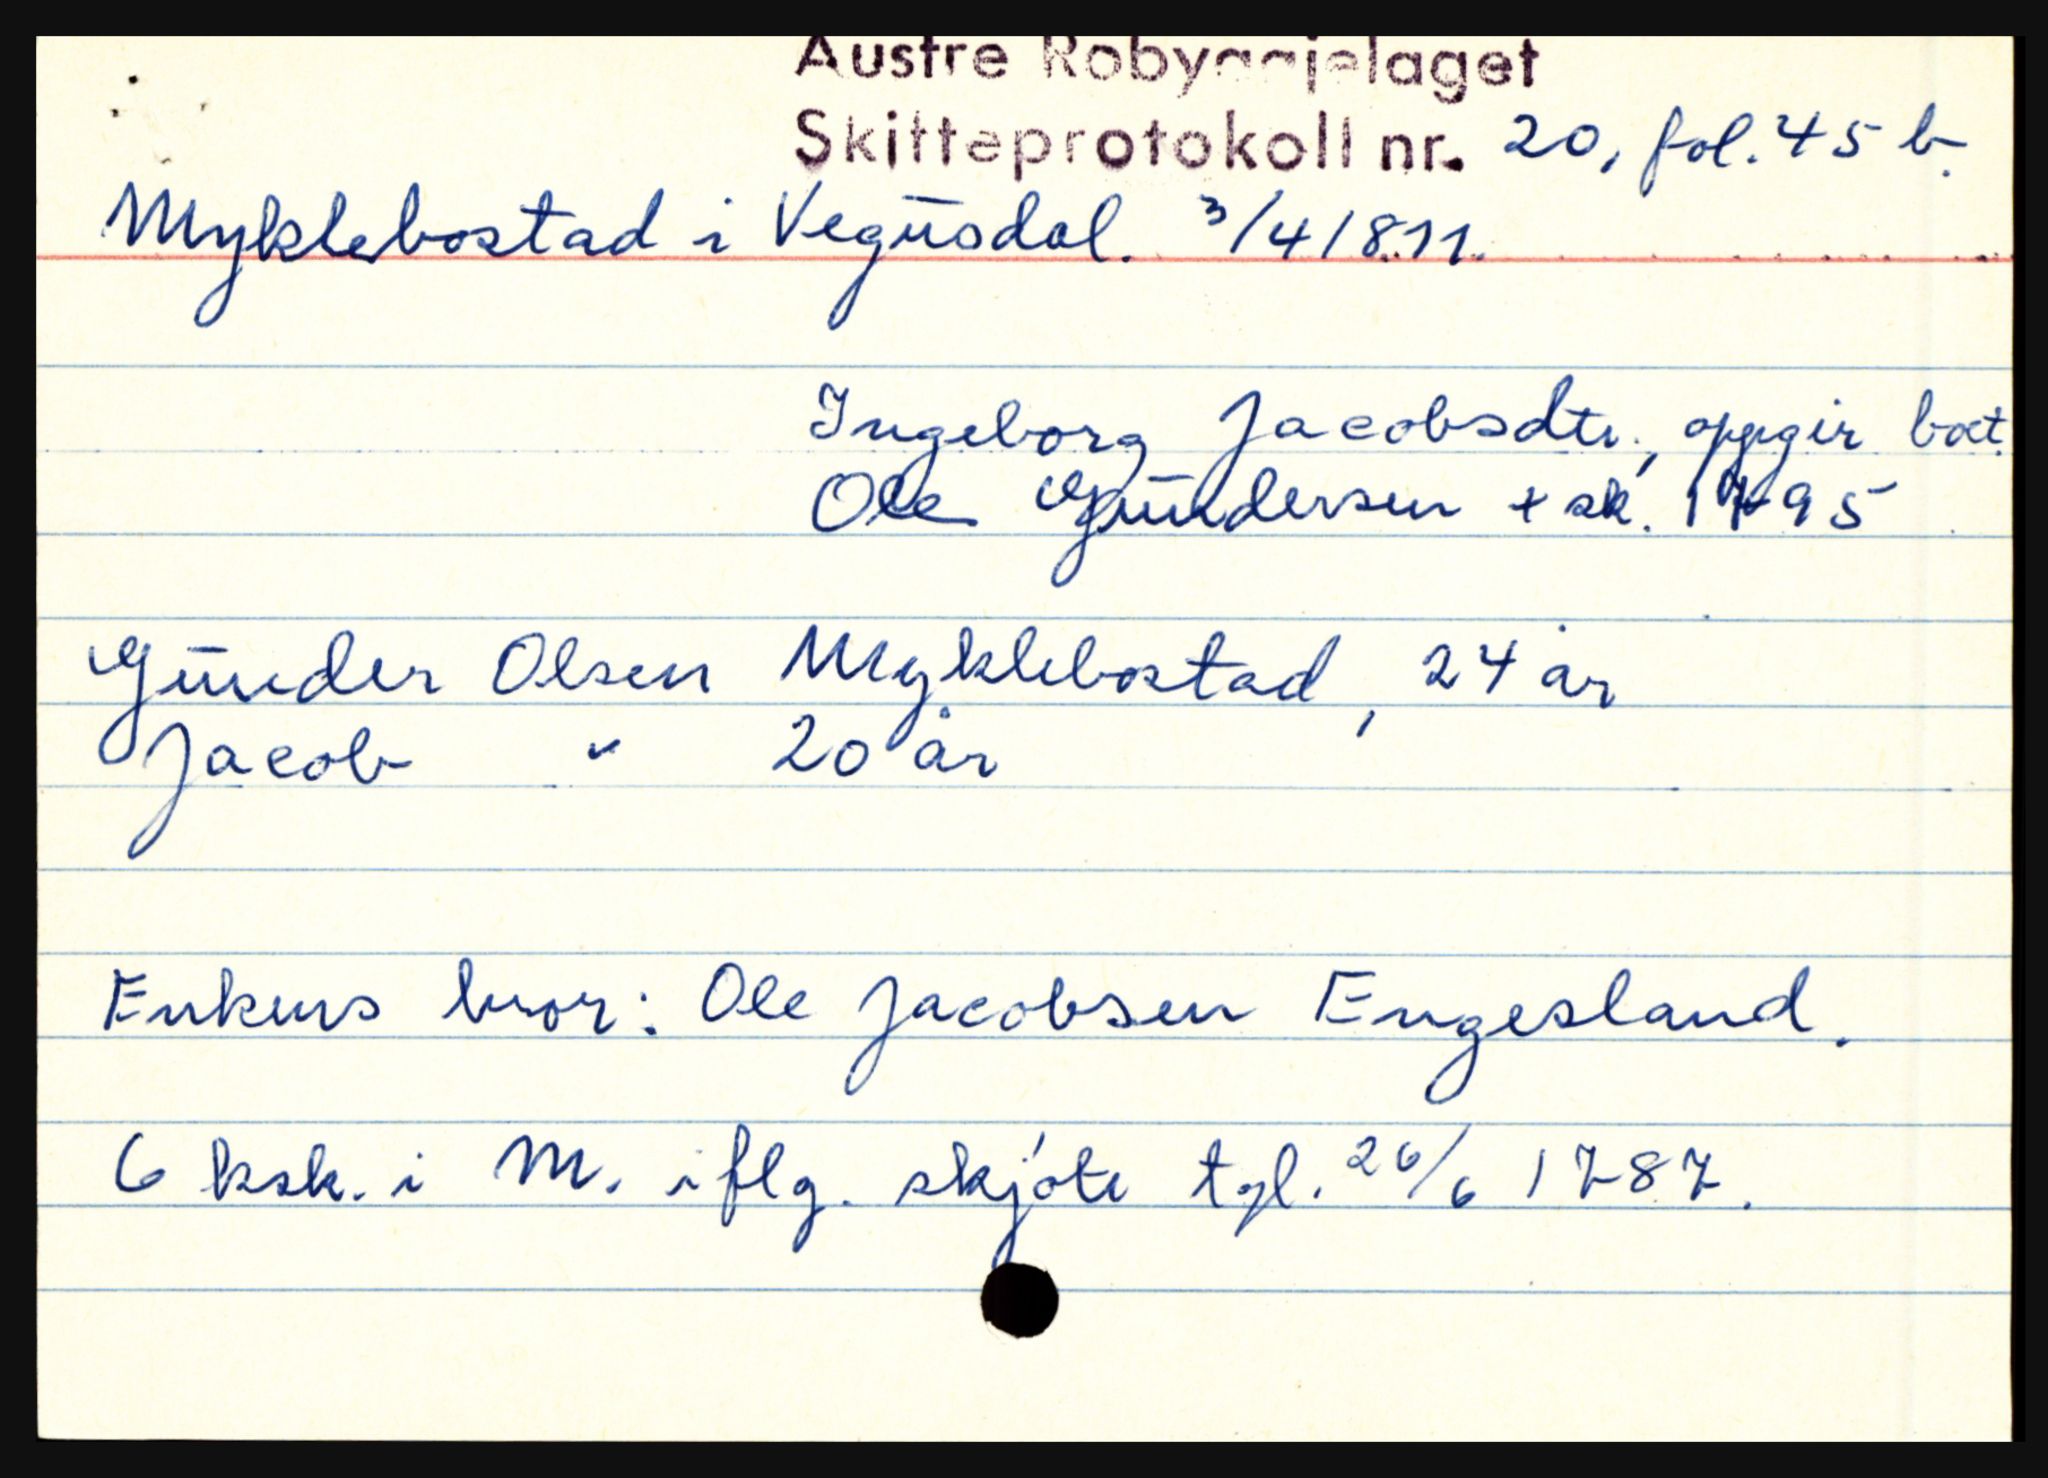 Austre Robyggjelaget
Skifteprotokoll nr. 20, fol. 45 b.
Myklebostad i Vegusdal. 3/4 1811.
Ingeborg Jacobsdtr., oppgir boet
Ole Gundersen + sk. 1795
Gunder Olsen Myklebostad, 24 år
Jacob " 20 år
Enkens bror: Ole Jacobsen Engesland.
6 ksk. i M. iflg. skjøte tgl. 26/6 1787.